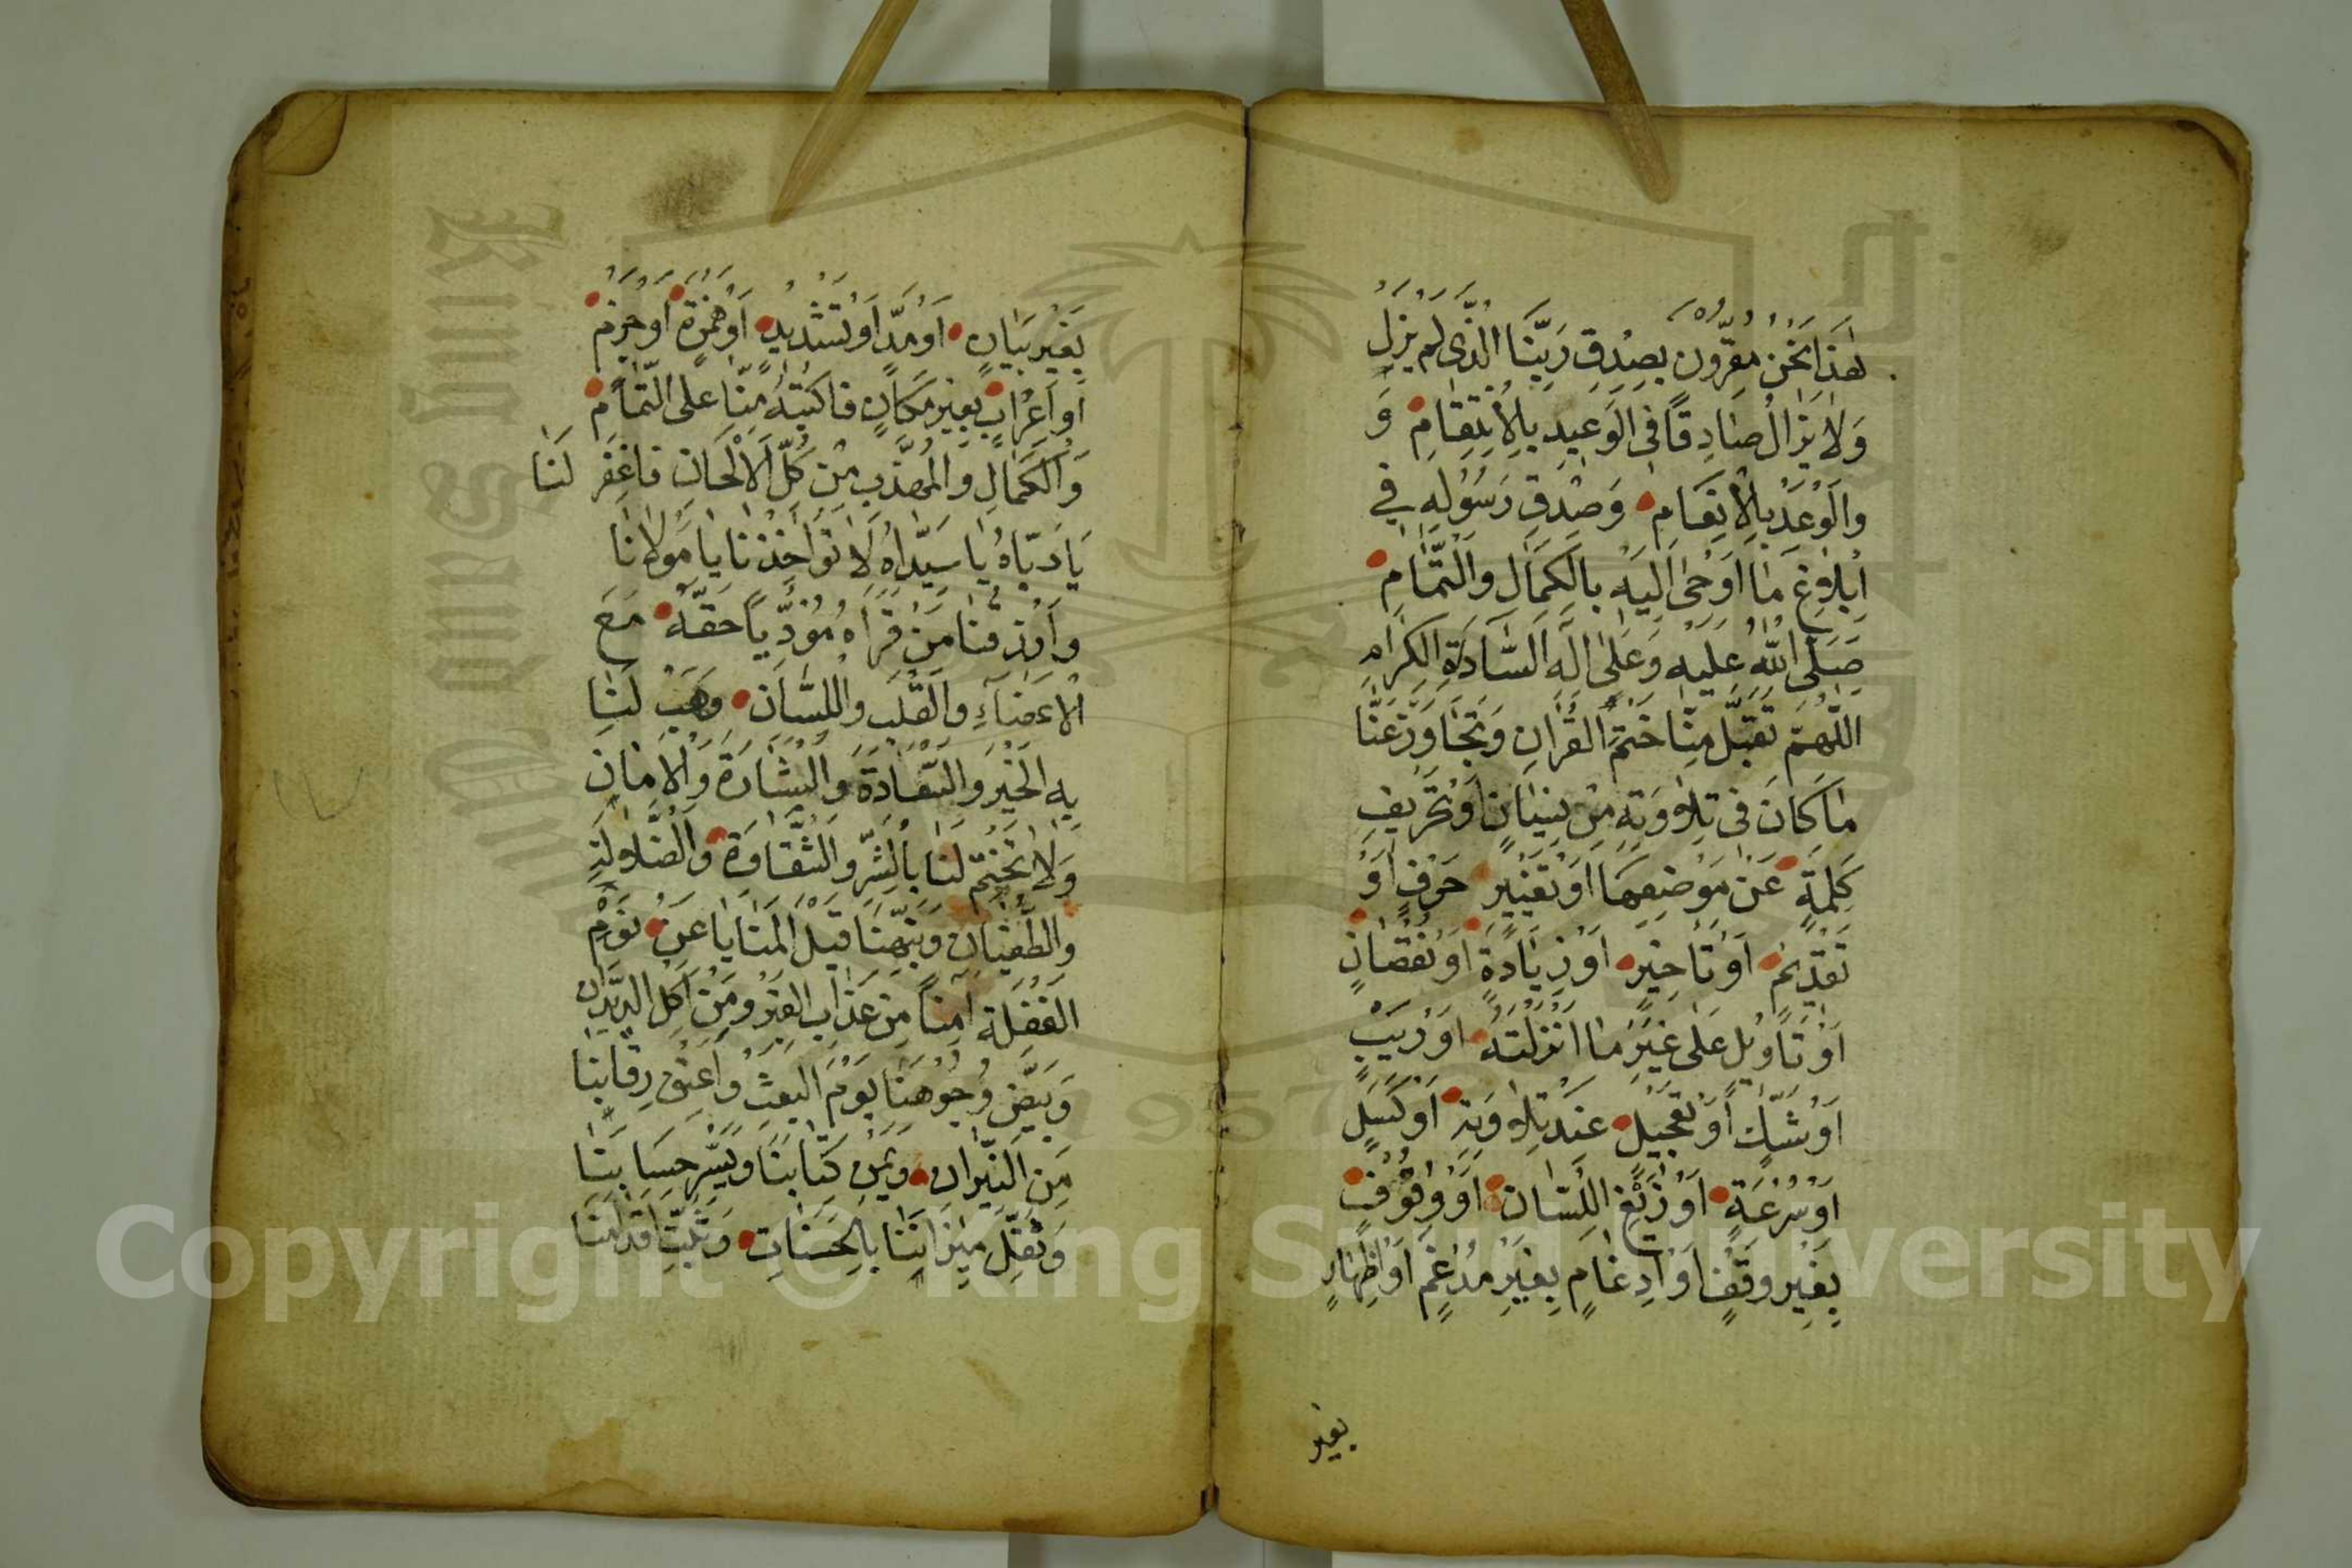 هٰذَا نَحْنُ مُقِرُّونَ بِصِدْقِ رَبِّنَا الَّذِى لَمْ يَزَلْ
وَلَا يَزَالُ صَادِقًا فِى الْوَعِيدِ بِالْاِنْتِقَامِ وَ
وَالْوَعْدِ بِالْاِنْعَامِ وَصِدْقِ رَسُولِهِ فِي
اِبْلَاغِ مَا اَوْحَى اِلَيْهِ بِالْكَمَالِ وَالتَّمَامِ
صَلَّى اللّٰهُ عَلَيْهِ وَعَلَى اٰلِهِ السَّادَةِ الْكِرَامِ
اللّٰهُمَّ تَقَبَّلْ مِنَّا خَتْمَ الْقُرْاٰنِ وَتَجَاوَزْ عَنَّا
مَا كَانَ فِى تِلَاوَتِهِ مِنْ نِسْيَانٍ اَوْ تَحْرِيفِ
كَلِمَةٍ عَنْ مَوْضِعِهَا اَوْ تَغْيِيرِ حَرْفٍ اَوْ
تَقْدِيمٍ اَوْ تَاْخِيرٍ اَوْ زِيَادَةٍ اَوْ نُقْصَانٍ
اَوْ تَاْوِيلٍ عَلَى غَيْرِ مَا اَنْزَلْتَهُ اَوْ رَيْبٍ
اَوْ شَكٍّ اَوْ تَعْجِيلٍ عِنْدَ تِلَاوَتِهِ اَوْ كَسَلٍ
اَوْ سُرْعَةٍ اَوْ زَيْغِ اللِّسَانِ اَوْ وُقُوفٍ
بِغَيْرِ وَقْفٍ اَوْ اِدْغَامٍ بِغَيْرِ مُدْغَمٍ اَوْ اِظْهَارٍ
بغير
بِغَيْرِ بَيَانٍ اَوْ مَدٍّ اَوْ تَشْدِيدٍ اَوْ هَمْزَةٍ اَوْ جَزْمٍ
اَوْ اِعْرَابٍ بِغَيْرِ مَكَانٍ فَاكْتُبْهُ مِنَّا عَلَى التَّمَامِ
وَالْكَمَالِ وَالْمُهَذَّبِ مِنْ كُلِّ الْاَلْحَانِ فَاغْفِرْ لَنَا
يَا رَبَّاهُ يَا سَيِّدَاهُ لَا تُؤَاخِذْنَا يَا مَوْلَانَا
وَارْزُقْنَا مَنْ قَرَاَهُ مُؤَدِّيًا حَقَّهُ مَعَ
الْاَعْضَاءِ وَالْقَلْبِ وَاللِّسَانِ وَهَبْ لَنَا
بِهِ الْخَيْرَ وَالسَّعَادَةَ وَالْبِشَارَةَ وَالْاَمَانَ
وَلَا تَخْتِمْ لَنَا بِالشَّرِّ وَالشَّقَاوَةِ وَالضَّلَالَةِ
وَالطُّغْيَانِ وَنَبِّهْنَا قَبْلَ الْمَنَايَا عَنْ نَوْمِ
الْغَفْلَةِ اٰمِنًا مِنْ عَذَابِ الْقَبْرِ وَمِنْ اَكْلِ الدِّيدَانِ
وَبَيِّضْ وُجُوهَنَا يَوْمَ الْبَعْثِ وَاَعْتِقْ رِقَابَنَا
مِنَ النِّيرَانِ وَيَمِّنْ كِتَابَنَا وَيَسِّرْ حِسَابَنَا
وَثَقِّلْ مِيزَانَنَا بِالْحَسَنَاتِ وَثَبِّتْ اَقْدَامَنَا
1957
Copyright © King Saud University